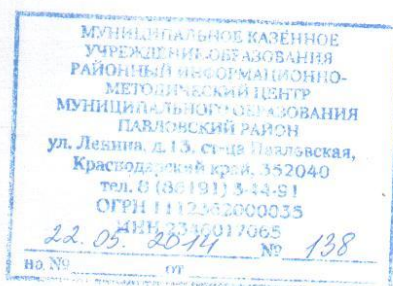 МУНИЦИПАЛЬНОЕ КАЗЁННОЕ
УЧРЕЖДЕНИЕ ОБРАЗОВАНИЯ
РАЙОННЫЙ ИНФОРМАЦИОННО-
МЕТОДИЧЕСКИЙ ЦЕНТР
МУНИЦИПАЛЬНОГО ОБРАЗОВАНИЯ
ПАВЛОВСКИЙ РАЙОН
ул. Ленина, д.13, ст-ца Павловская,
Краснодарский край, 352040
тел. 8 (86191)
ОГРН
ИНН
22. 05. 2014 № 138
на № от